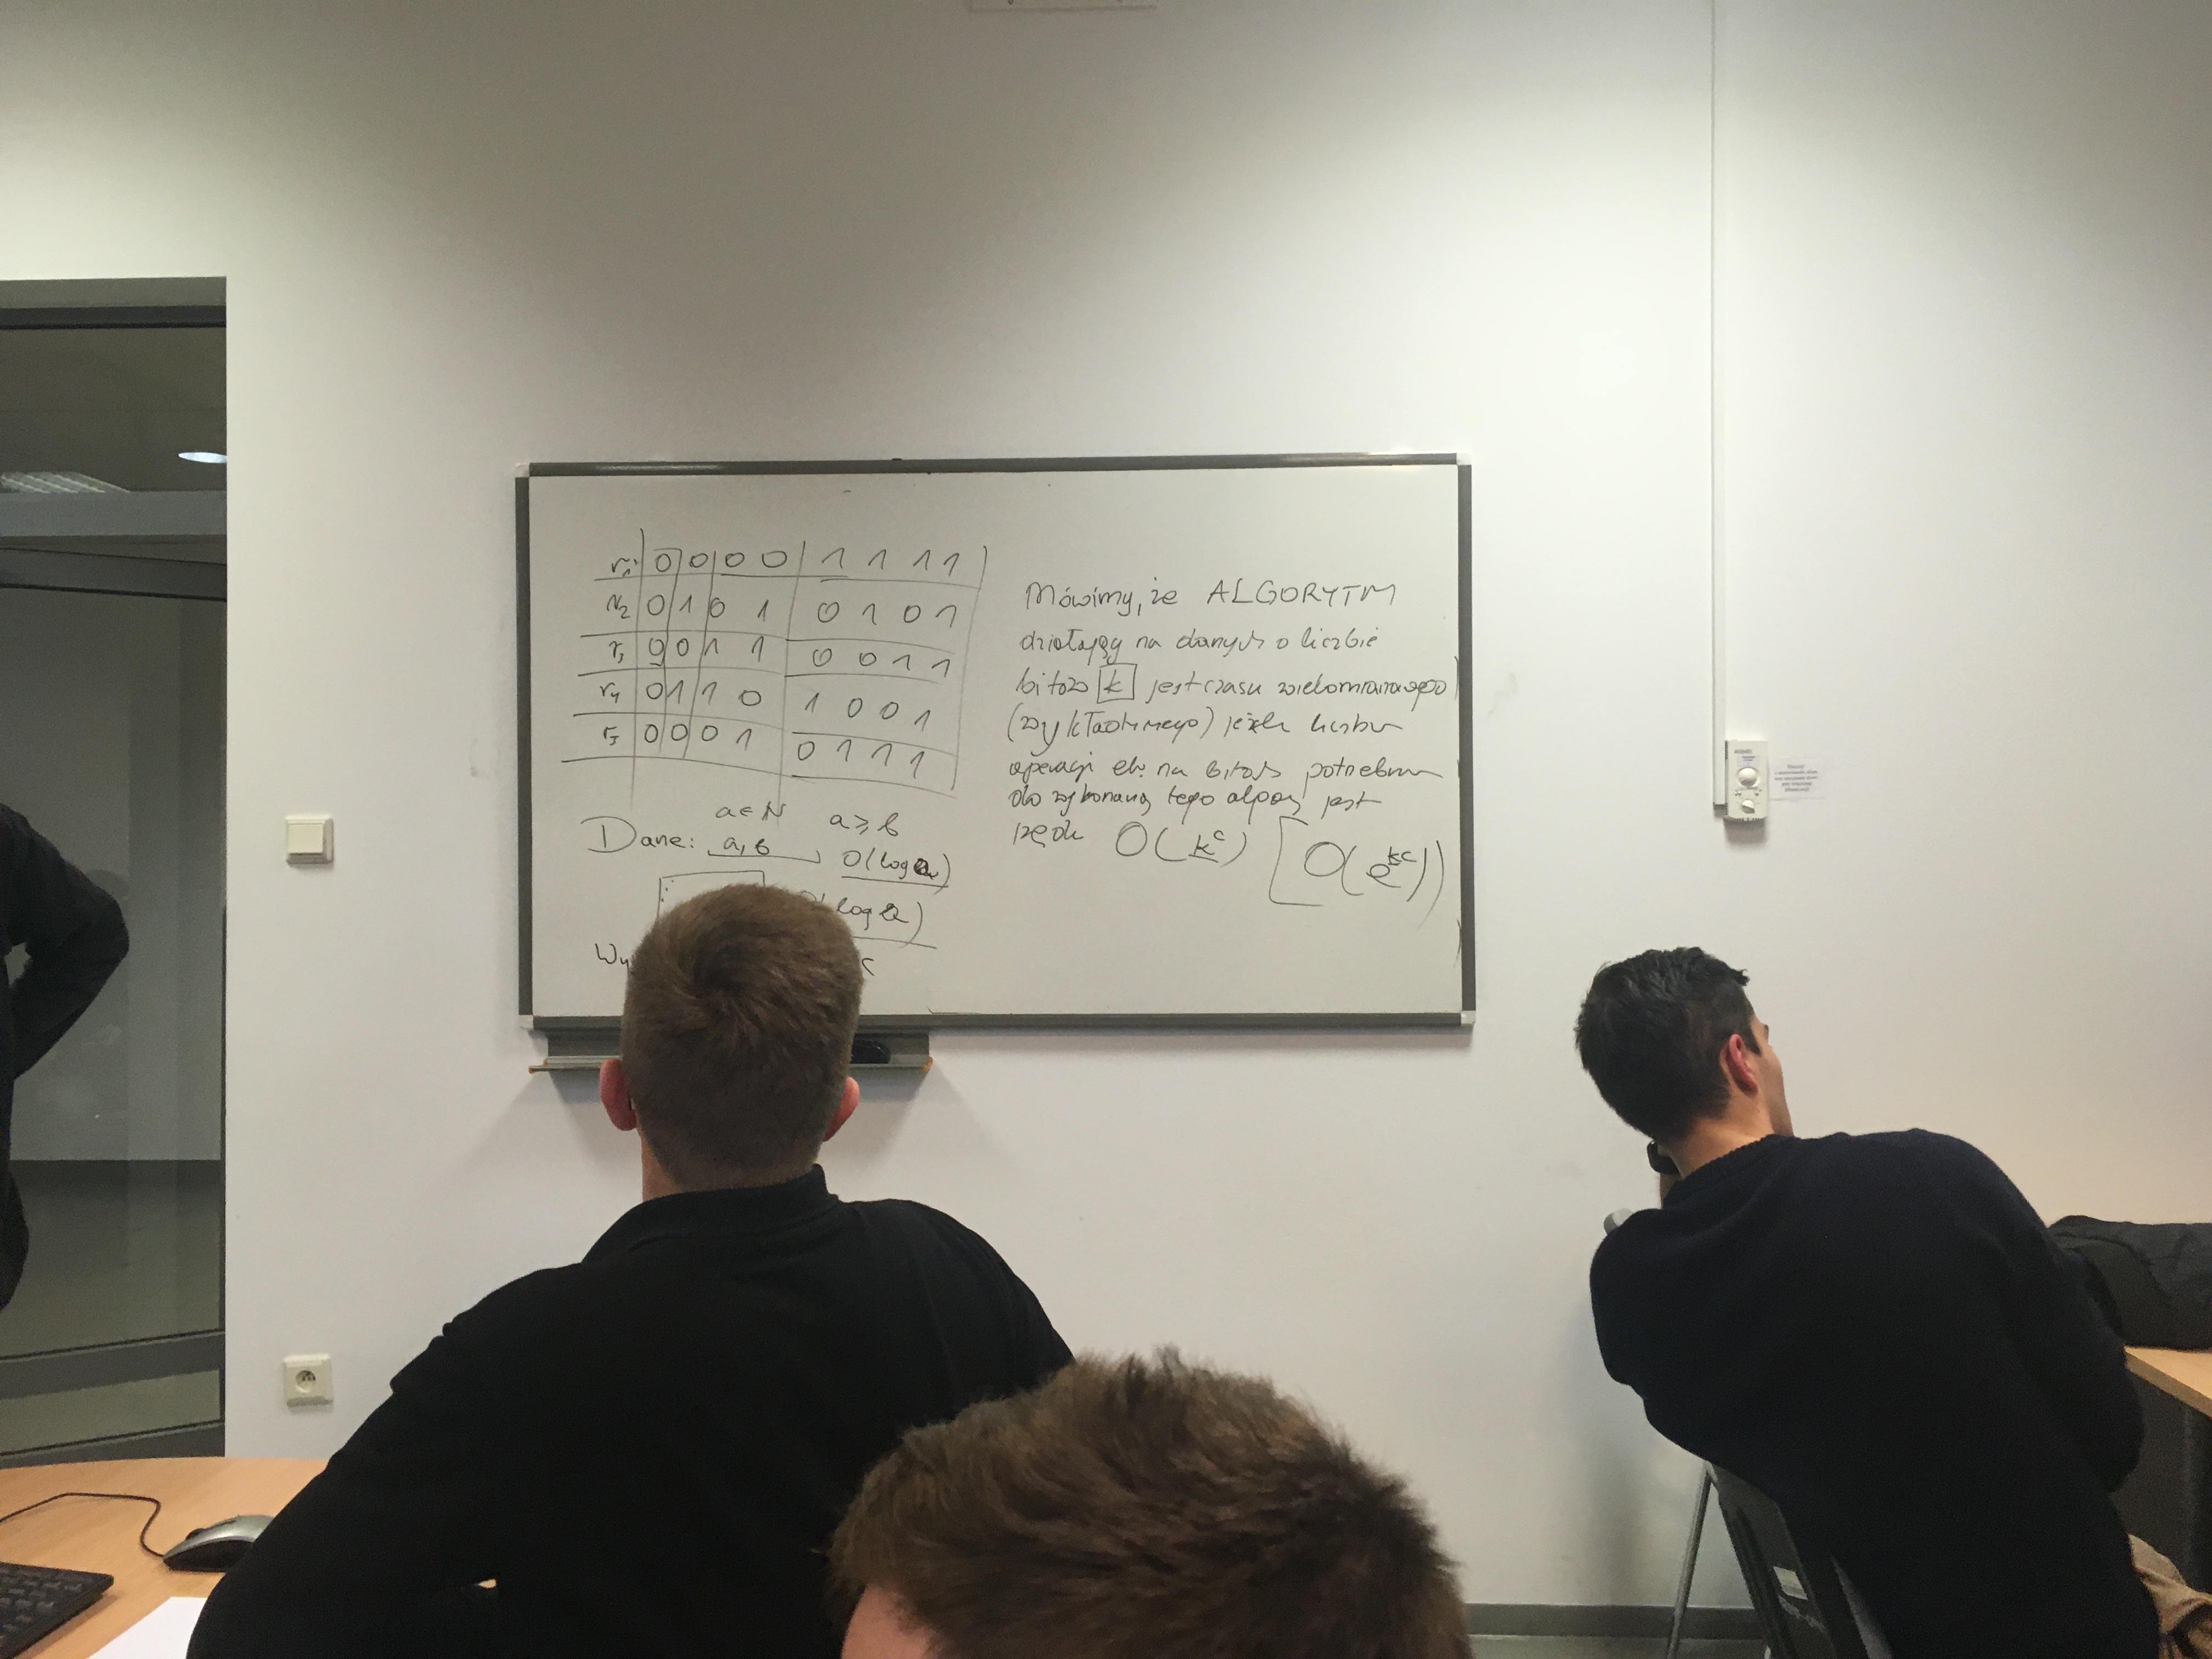 r₁ 0 0 0 0 1 1 1 1
r₂ 0 1 0 1 0 1 0 1
r₃ 0 0 1 1 0 0 1 1
r₄ 0 1 1 0 1 0 0 1
r₅ 0 0 0 1 0 1 1 1
a∈N a≥b
Dane: a,b O(log a)
log a)
Wy
c
Mówimy, że ALGORYTM
działający na danych o liczbie
bitów k jest czasu wielomianowego
(wykładniczego) jeżeli liczba
operacji el. na bitach potrzebna
do wykonania tego algor jest
rzędu O(k^c) [O(e^{k^c})]